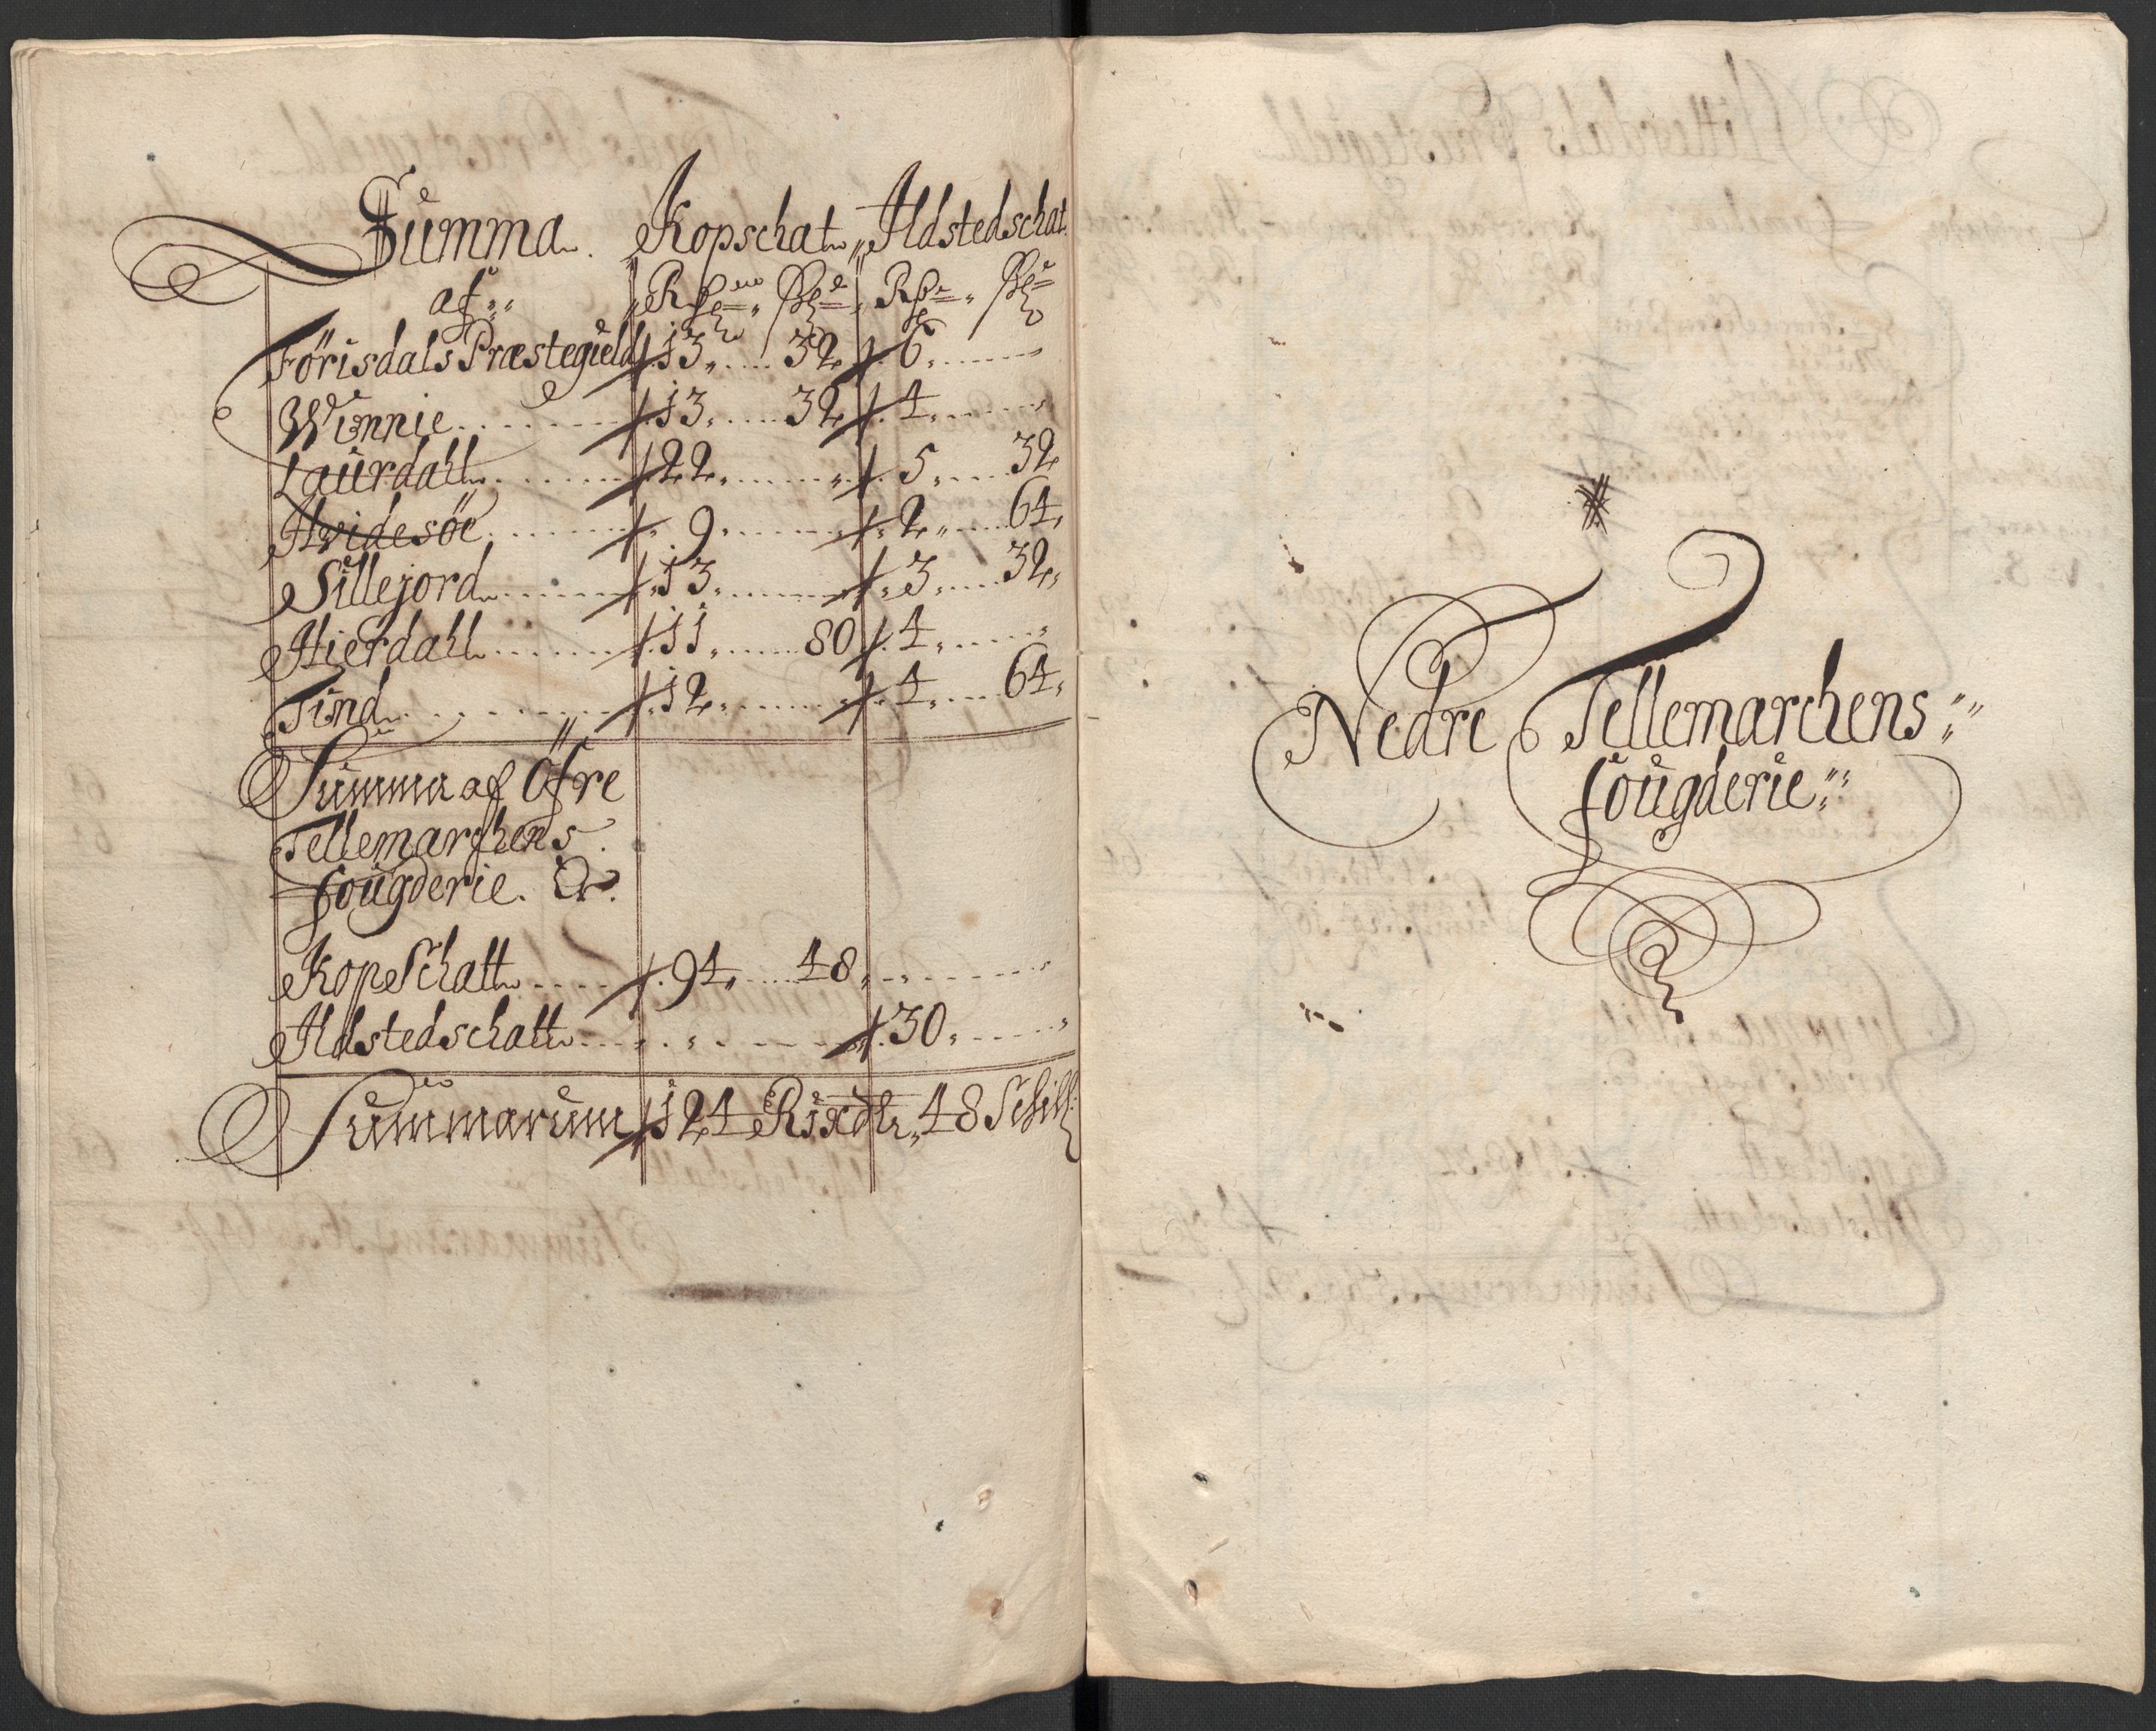 Summa. Kopschat Ildstedschat
af
Förisdals Præstegield 13 32 6
Winnie 13 32 4
Laurdahl 22 5 32
Hvidesöe 9 2 64
Sillejord 13 3 32
Hierdahl 11 80 4
Tind 12 4 64
Summa af Öfre
Tellemarchens
fougderie.
Kopeschatt 94 48
Ildstedschatt 30
Summarum 124 Rixdlr 48 Schill:
Nedre Tellemarchens
fougderie